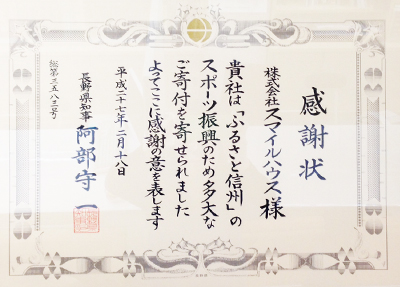 感謝状
株式会社スマイルハウス様
貴社は「ふるさと信州」の
スポーツ振興のため多大な
ご寄付を寄せられました
よってここに感謝の意を表します
平成二十七年二月十八日
長野県知事 阿部守一
総第三五八三号